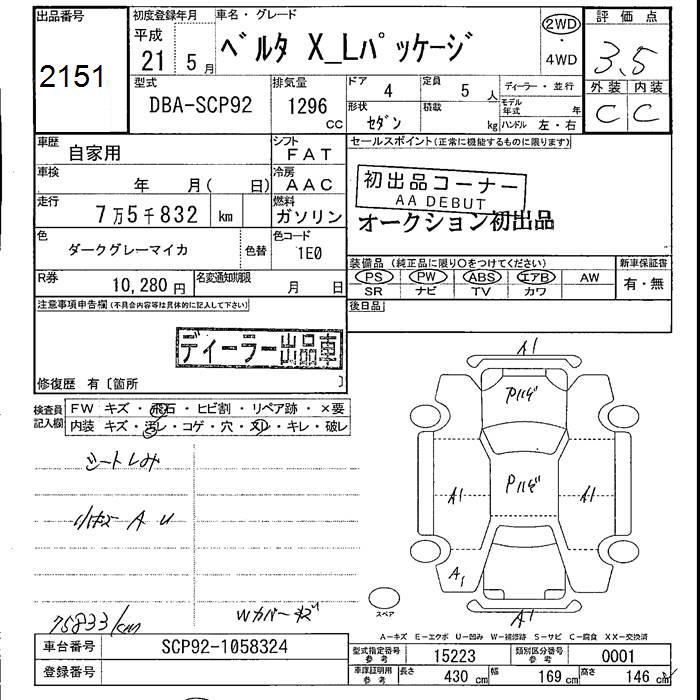 出品番号
2151
初度登録年月
平成
21 5 月
車名・グレード
ベルタ X_Lパッケージ
2WD
・
4WD
評価点
3.5
外装 内装
C C
型式
DBA-SCP92
排気量
1296
CC
ドア
4
定員
5 人
ディーラー・並行
モデル年式 年
形状
セダン
積載
kg
ハンドル 左・右
車歴
自家用
シフト
FAT
車検
年 月( 日)
冷房
AAC
走行
7万5千832 km
燃料
ガソリン
色
ダークグレーマイカ
色替
色コード
1E0
R券
10,280 円
名変通知期限
月 日
セールスポイント(正常に機能するものに限ります)
初出品コーナー
AA DEBUT
オークション初出品
装備品 (純正品に限り○をつけてください)
PS PW ABS エアB AW
SR ナビ TV カワ
新車保証書
有・無
後日品
注意事項申告欄(不具合内容等は具体的に記入して下さい)
ディーラー出品車
修復歴 有〔箇所 〕
検査員記入欄
FW キズ・飛石・ヒビ割・リペア跡・×要
内装 キズ・汚レ・コゲ・穴・スレ・キレ・破レ
シートしみ
小キズ A U
75833/km
Wカバーキズ
A1
Pハゲ
Pハゲ
A1
A1
A1
A1
スペア
A-キズ E-エクボ U-凹み W-補修跡 S-サビ C-腐食 XX-交換済
車台番号
SCP92-1058324
登録番号
型式指定番号 参考
15223
類別区分番号 参考
0001
車庫証明用 参考
長さ 430 cm
幅 169 cm
高さ 146 cm